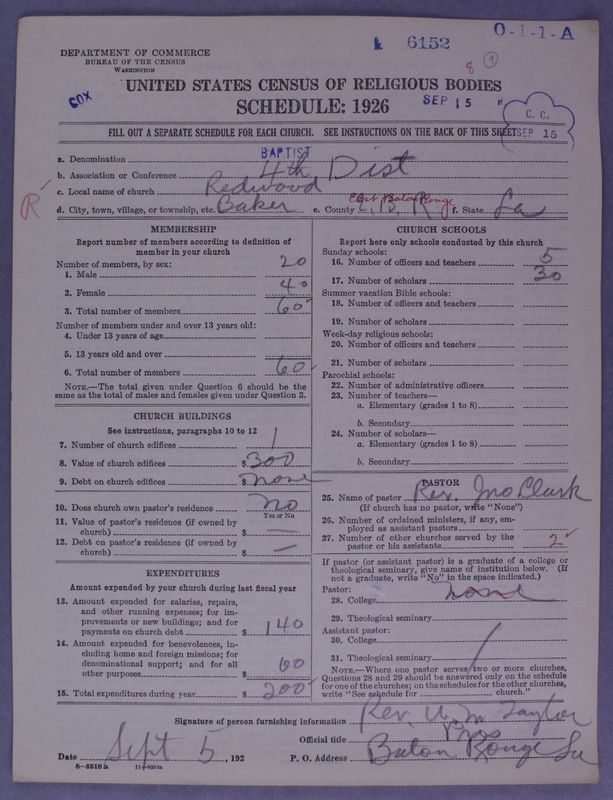 6152
O-1-1-A
DEPARTMENT OF COMMERCE
BUREAU OF THE CENSUS
WASHINGTON
8 1
UNITED STATES CENSUS OF RELIGIOUS BODIES
COX
SCHEDULE: 1926
SEP 15
C. C.
SEP 15
FILL OUT A SEPARATE SCHEDULE FOR EACH CHURCH. SEE INSTRUCTIONS ON THE BACK OF THIS SHEET
a. Denomination BAPTIST
b. Association or Conference 4th Dist
c. Local name of church Redwood
R
d. City, town, village, or township, etc. Baker e. County E. B. R East Baton Rouge f. State La
MEMBERSHIP
Report number of members according to definition of
member in your church
Number of members, by sex:
1. Male 20
2. Female 40
3. Total number of members 60
Number of members under and over 13 years old:
4. Under 13 years of age
5. 13 years old and over
6. Total number of members 60
NOTE.—The total given under Question 6 should be the
same as the total of males and females given under Question 3.
CHURCH BUILDINGS
See instructions, paragraphs 10 to 12
7. Number of church edifices 1
8. Value of church edifices $300
9. Debt on church edifices $none
10. Does church own pastor's residence no
Yes or No
11. Value of pastor's residence (if owned by
church) $ —
12. Debt on pastor's residence (if owned by
church) $ —
EXPENDITURES
Amount expended by your church during last fiscal year
13. Amount expended for salaries, repairs,
and other running expenses; for im-
provements or new buildings; and for
payments on church debt $ 140
14. Amount expended for benevolences, in-
cluding home and foreign missions; for
denominational support; and for all
other purposes $ 60
15. Total expenditures during year $ 200
CHURCH SCHOOLS
Report here only schools conducted by this church
Sunday schools:
16. Number of officers and teachers 5
17. Number of scholars 30
Summer vacation Bible schools:
18. Number of officers and teachers
19. Number of scholars
Week-day religious schools:
20. Number of officers and teachers
21. Number of scholars
Parochial schools:
22. Number of administrative officers
23. Number of teachers—
a. Elementary (grades 1 to 8)
b. Secondary
24. Number of scholars—
a. Elementary (grades 1 to 8)
b. Secondary
PASTOR
25. Name of pastor Rev. Jno Clark
(If church has no pastor, write "None")
26. Number of ordained ministers, if any, em-
ployed as assistant pastors
27. Number of other churches served by the
pastor or his assistants 2
If pastor (or assistant pastor) is a graduate of a college or
theological seminary, give name of institution below. (If
not a graduate, write "No" in the space indicated.)
Pastor:
28. College none
29. Theological seminary
Assistant pastor:
30. College
31. Theological seminary
NOTE.—Where one pastor serves two or more churches,
Questions 28 and 29 should be answered only on the schedule
for one of the churches; on the schedules for the other churches,
write "See schedule for church."
Signature of person furnishing information Rev. U. M. Taylor
Official title
Date Sept 5, 192 P. O. Address Baton Rouge La
6—5518 h